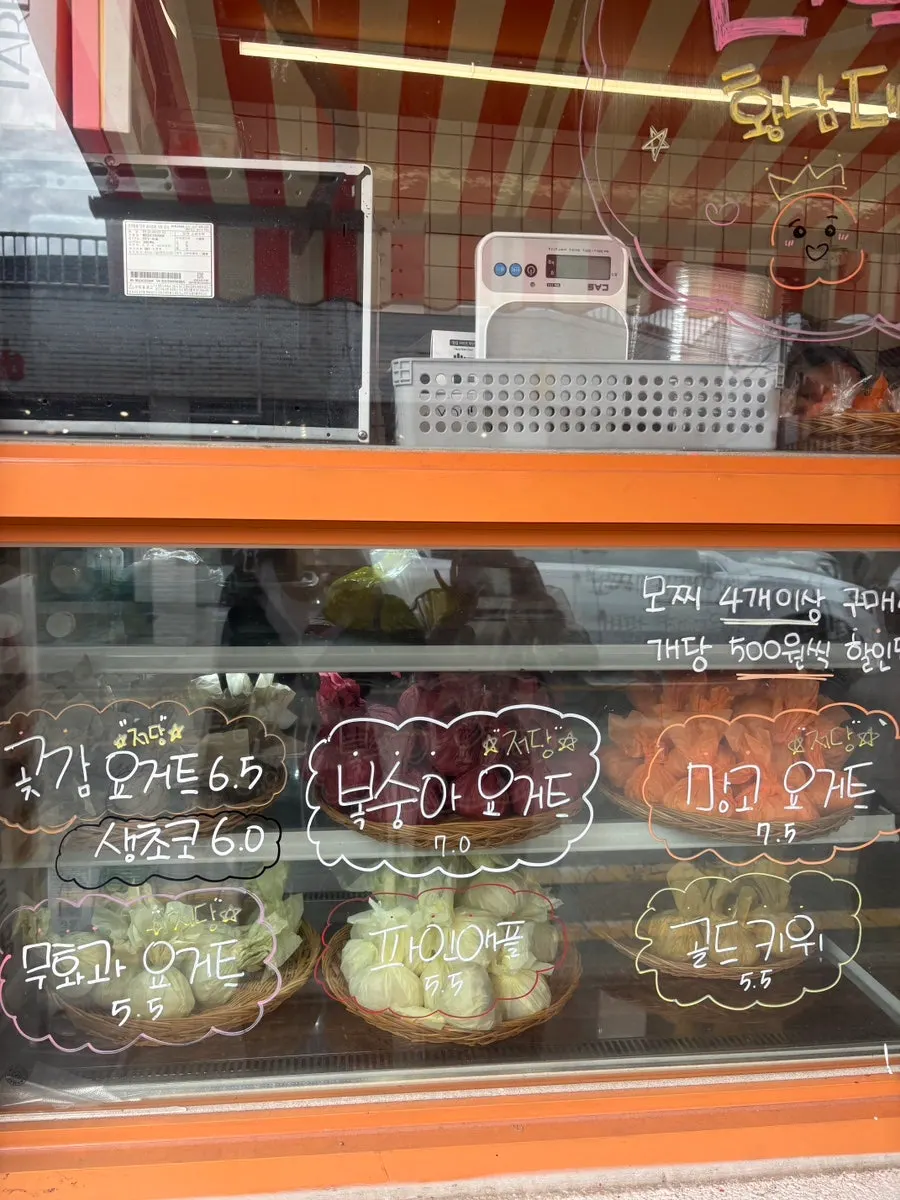 황남
CAS
모찌 4개이상 구매
개당 500원씩 할인
저당
곶감 요거트 6.5
생초코 6.0
저당
복숭아 요거트
7.0
저당
망고 요거트
7.5
저당
무화과 요거트
5.5
파인애플
5.5
골드키위
5.5